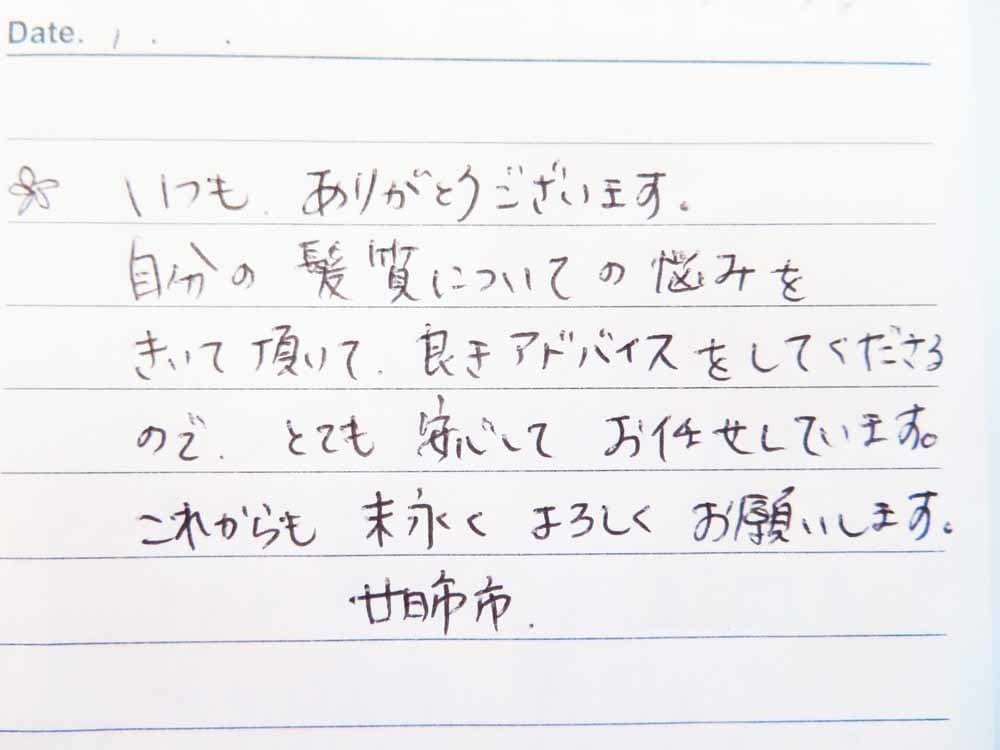 Date. / . .
いつも、ありがとうございます。
自分の髪質についての悩みを
きいて頂いて、良きアドバイスをしてくださる
ので、とても安心してお任せしています。
これからも末永くよろしくお願いします。
廿日市市.